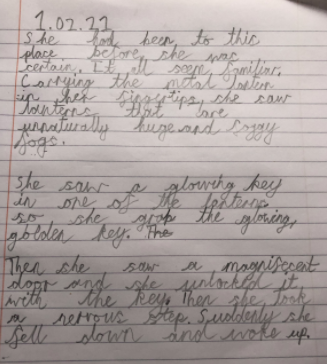 1.02.22
She had been to this
place before, she was
certain. It all seem familiar.
Carrying the metal lantern
in her fingertips, she saw
lanterns that are
unnaturally huge and foggy
fogs.
She saw a glowing key
in one of the lanterns
so she grap the glowing,
golden key. The
Then she saw a magnificent
door and she unlocked it
with the key. Then she took
a nervous step. Suddenly she
fell down and woke up.